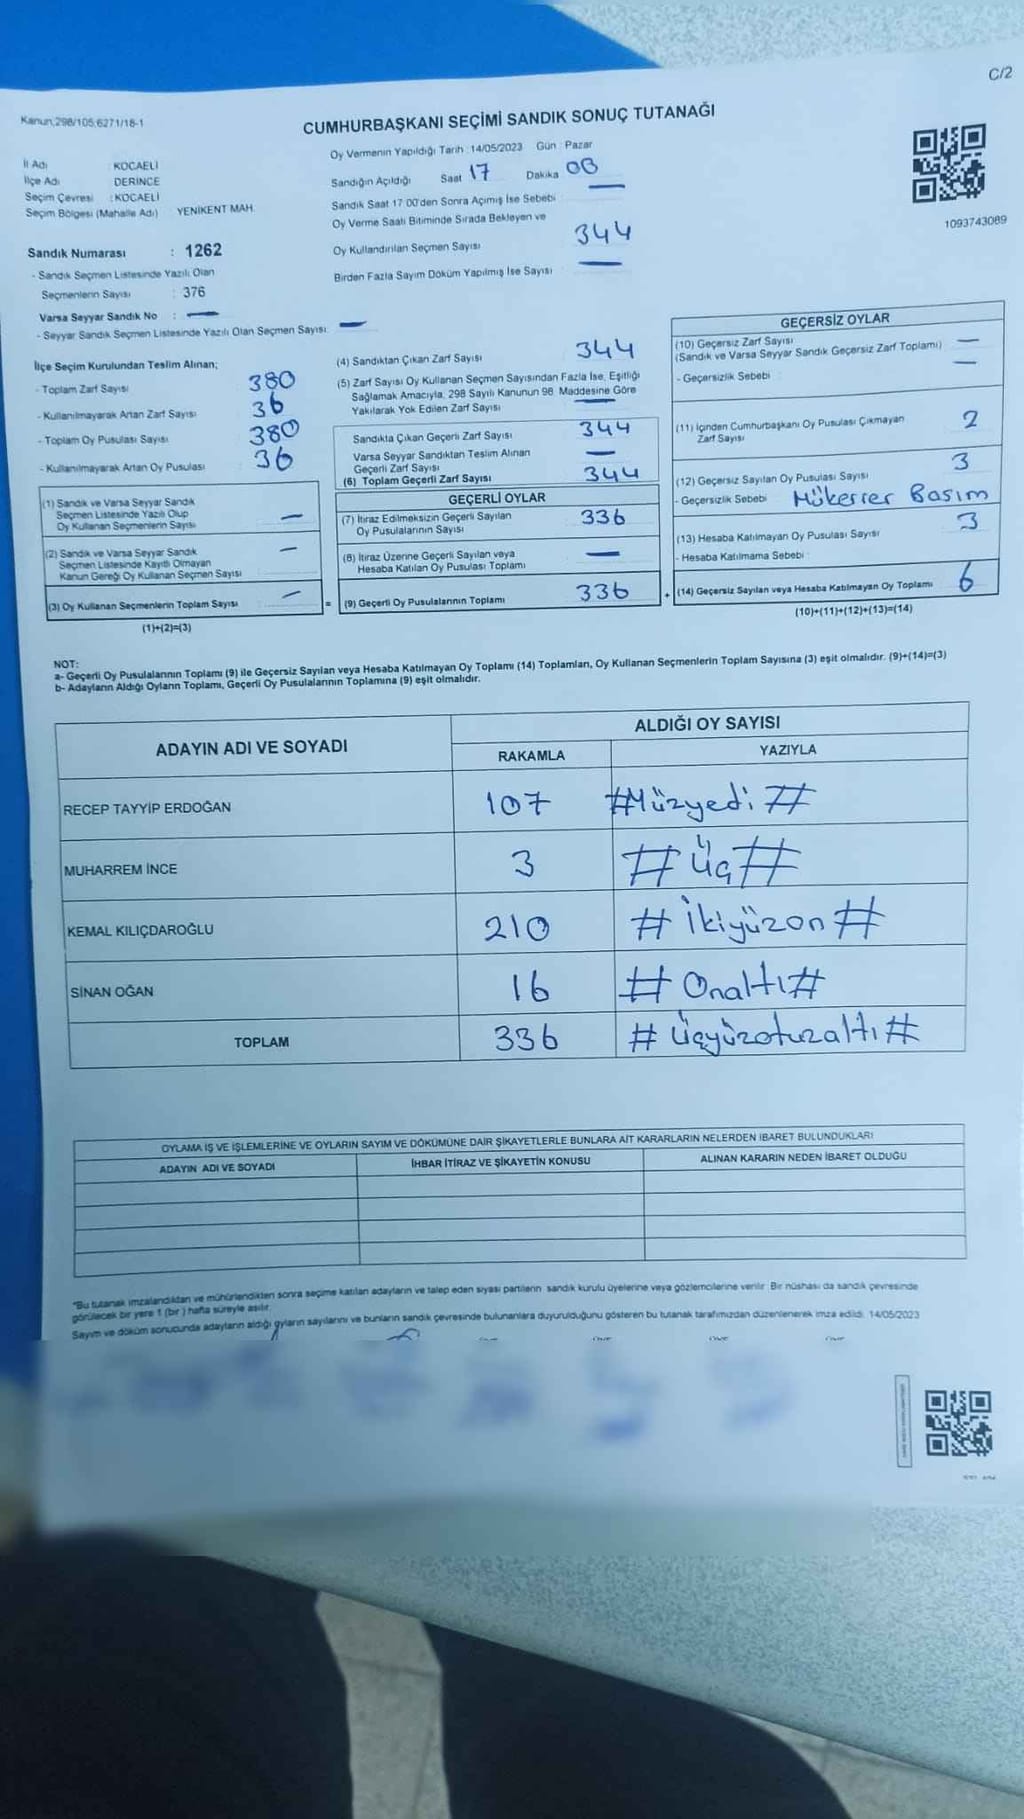 C/2
Kanun;298/105;6271/18-1
CUMHURBAŞKANI SEÇİMİ SANDIK SONUÇ TUTANAĞI
İl Adı : KOCAELİ
İlçe Adı : DERİNCE
Seçim Çevresi : KOCAELİ
Seçim Bölgesi (Mahalle Adı) : YENİKENT MAH.
Sandık Numarası : 1262
- Sandık Seçmen Listesinde Yazılı Olan
Seçmenlerin Sayısı : 376
Varsa Seyyar Sandık No : —
- Seyyar Sandık Seçmen Listesinde Yazılı Olan Seçmen Sayısı: —
Oy Vermenin Yapıldığı Tarih :14/05/2023 Gün : Pazar
Sandığın Açıldığı Saat 17 Dakika
Sandık Saat 17.00'den Sonra Açımış İse Sebebi : —
Oy Verme Saati Bitiminde Sırada Bekleyen ve
Oy Kullandırılan Seçmen Sayısı 344
Birden Fazla Sayım Döküm Yapılmış İse Sayısı —
1093743089
İlçe Seçim Kurulundan Teslim Alınan;
- Toplam Zarf Sayısı 380
- Kullanılmayarak Artan Zarf Sayısı 36
- Toplam Oy Pusulası Sayısı 380
- Kullanılmayarak Artan Oy Pusulası 36
(1) Sandık ve Varsa Seyyar Sandık
Seçmen Listesinde Yazılı Olup
Oy Kullanan Seçmenlerin Sayısı —
(2) Sandık ve Varsa Seyyar Sandık
Seçmen Listesinde Kayıtlı Olmayan
Kanun Gereği Oy Kullanan Seçmen Sayısı —
(3) Oy Kullanan Seçmenlerin Toplam Sayısı —
(1)+(2)=(3)
(4) Sandıktan Çıkan Zarf Sayısı 344
(5) Zarf Sayısı Oy Kullanan Seçmen Sayısından Fazla İse, Eşitliği
Sağlamak Amacıyla, 298 Sayılı Kanunun 98. Maddesine Göre
Yakılarak Yok Edilen Zarf Sayısı —
Sandıkta Çıkan Geçerli Zarf Sayısı 344
Varsa Seyyar Sandıktan Teslim Alınan
Geçerli Zarf Sayısı —
(6) Toplam Geçerli Zarf Sayısı 344
GEÇERLİ OYLAR
(7) İtiraz Edilmeksizin Geçerli Sayılan
Oy Pusulalarının Sayısı 336
(8) İtiraz Üzerine Geçerli Sayılan veya
Hesaba Katılan Oy Pusulası Toplamı —
= (9) Geçerli Oy Pusulalarının Toplamı 336
GEÇERSİZ OYLAR
(10) Geçersiz Zarf Sayısı —
(Sandık ve Varsa Seyyar Sandık Geçersiz Zarf Toplamı)
- Geçersizlik Sebebi : —
(11) İçinden Cumhurbaşkanı Oy Pusulası Çıkmayan
Zarf Sayısı 2
(12) Geçersiz Sayılan Oy Pusulası Sayısı 3
- Geçersizlik Sebebi : Mükerrer Basım
(13) Hesaba Katılmayan Oy Pusulası Sayısı 3
- Hesaba Katılmama Sebebi :
+ (14) Geçersiz Sayılan veya Hesaba Katılmayan Oy Toplamı 6
(10)+(11)+(12)+(13)=(14)
NOT:
a- Geçerli Oy Pusulalarının Toplamı (9) ile Geçersiz Sayılan veya Hesaba Katılmayan Oy Toplamı (14) Toplamları, Oy Kullanan Seçmenlerin Toplam Sayısına (3) eşit olmalıdır. (9)+(14)=(3)
b- Adayların Aldığı Oyların Toplamı, Geçerli Oy Pusulalarının Toplamına (9) eşit olmalıdır.
ADAYIN ADI VE SOYADI
ALDIĞI OY SAYISI
RAKAMLA YAZIYLA
RECEP TAYYİP ERDOĞAN 107 #Yüzyedi#
MUHARREM İNCE 3 #Üç#
KEMAL KILIÇDAROĞLU 210 #İkiyüzon#
SİNAN OĞAN 16 #Onaltı#
TOPLAM 336 #Üçyüzotuzaltı#
OYLAMA İŞ VE İŞLEMLERİNE VE OYLARIN SAYIM VE DÖKÜMÜNE DAİR ŞİKAYETLERLE BUNLARA AİT KARARLARIN NELERDEN İBARET BULUNDUKLARI
ADAYIN ADI VE SOYADI İHBAR İTİRAZ VE ŞİKAYETİN KONUSU ALINAN KARARIN NEDEN İBARET OLDUĞU
*Bu tutanak imzalandıktan ve mühürlendikten sonra seçime katılan adayların ve talep eden siyasi partilerin sandık kurulu üyelerine veya gözlemcilerine verilir. Bir nüshası da sandık çevresinde
görülecek bir yere 1 (bir) hafta süreyle asılır.
Sayım ve döküm sonucunda adayların aldığı oyların sayılarını ve bunların sandık çevresinde bulunanlara duyurulduğunu gösteren bu tutanak tarafımızdan düzenlenerek imza edildi. 14/05/2023